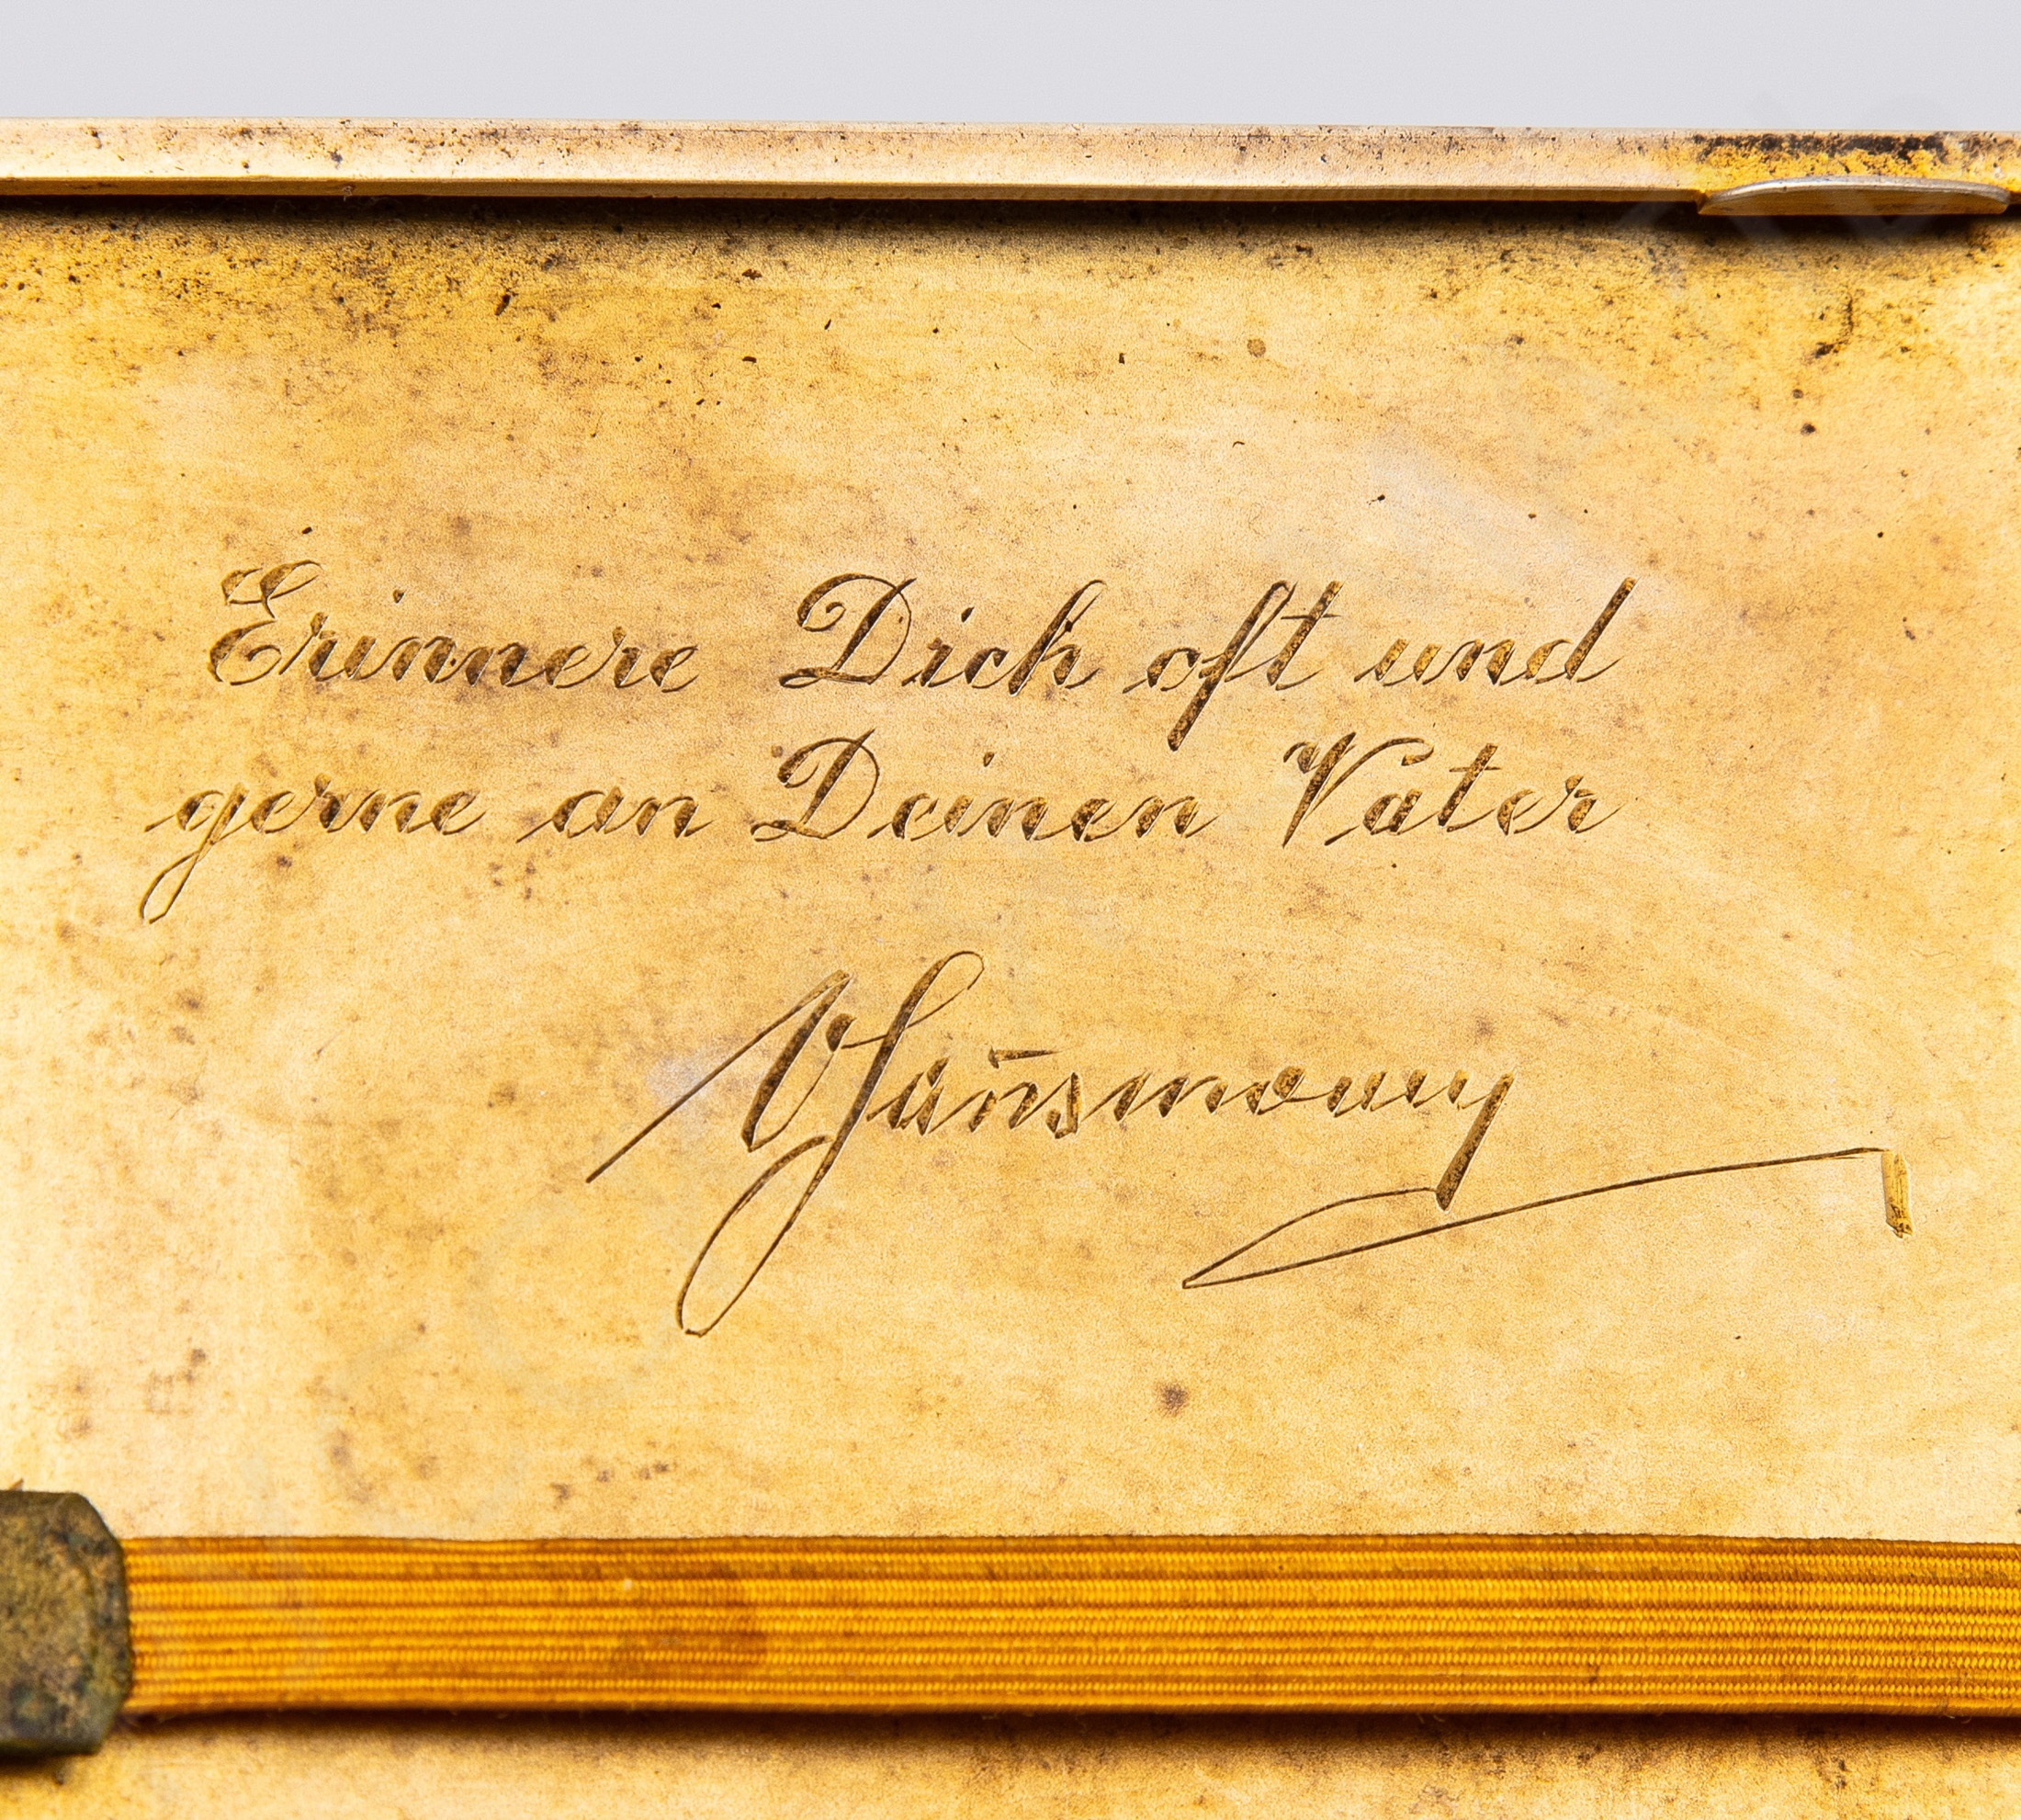 Erinnere Dich oft und
gerne an Deinen Vater